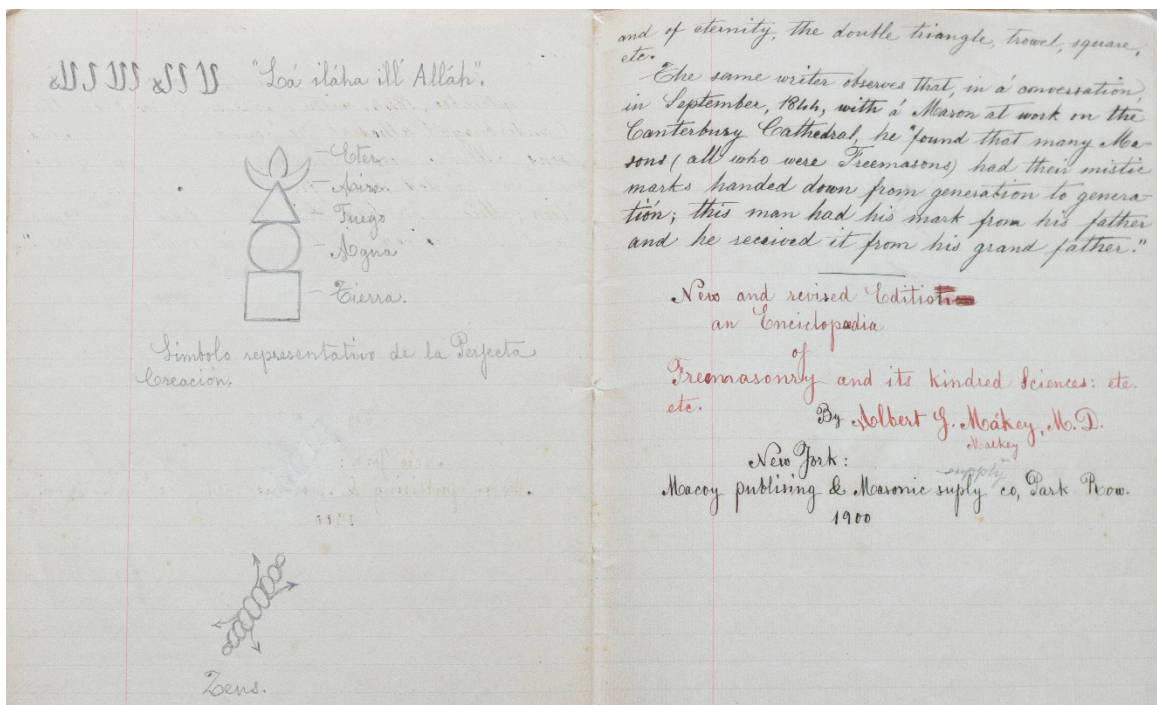 "Lá iláha ill' Alláh".
Eter
Aire
Fuego
Agua
Tierra.
Simbolo representativo de la Perfecta
Creación.
Zens.
and of eternity, the double triangle, trowel, square,
etc.
The same writer observes that, in a conversation,
in September, 1844, with á Mason at work on the
Canterbury Cathedral, he "found that many Ma-
sons (all who were Freemasons) had their mistic
marks handed down from generation to genera-
tión; this man had his mark from his father
and he received it from his grand father."
New and revised Edition
an Enciclopædia
of
Freemasonry and its kindred Sciences: etc.
etc.
By Albert G. Mákey, M.D.
Mackey
New York:
supply
Macoy publising & Masonic suply co, Park Row.
1900